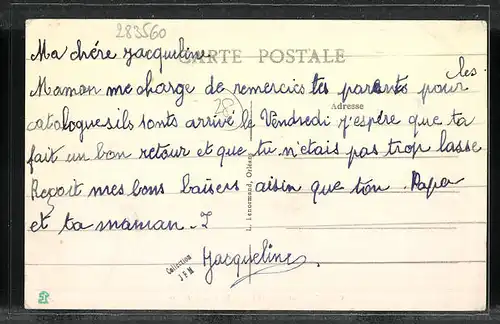 283560
Ma chère Jacqueline
CARTE POSTALE
Maman me charge de remercies tes parents pour les
Adresse
catalogues ils sonts arrivé le Vendredi j'espère que ta
fait un bon retour et que tu n'etais pas trop lasse
Reçoit mes bons baisers aisin que ton Papa
et ta maman. J
Jacqueline.
L. Lenormand, Orléans
Collection
J F M